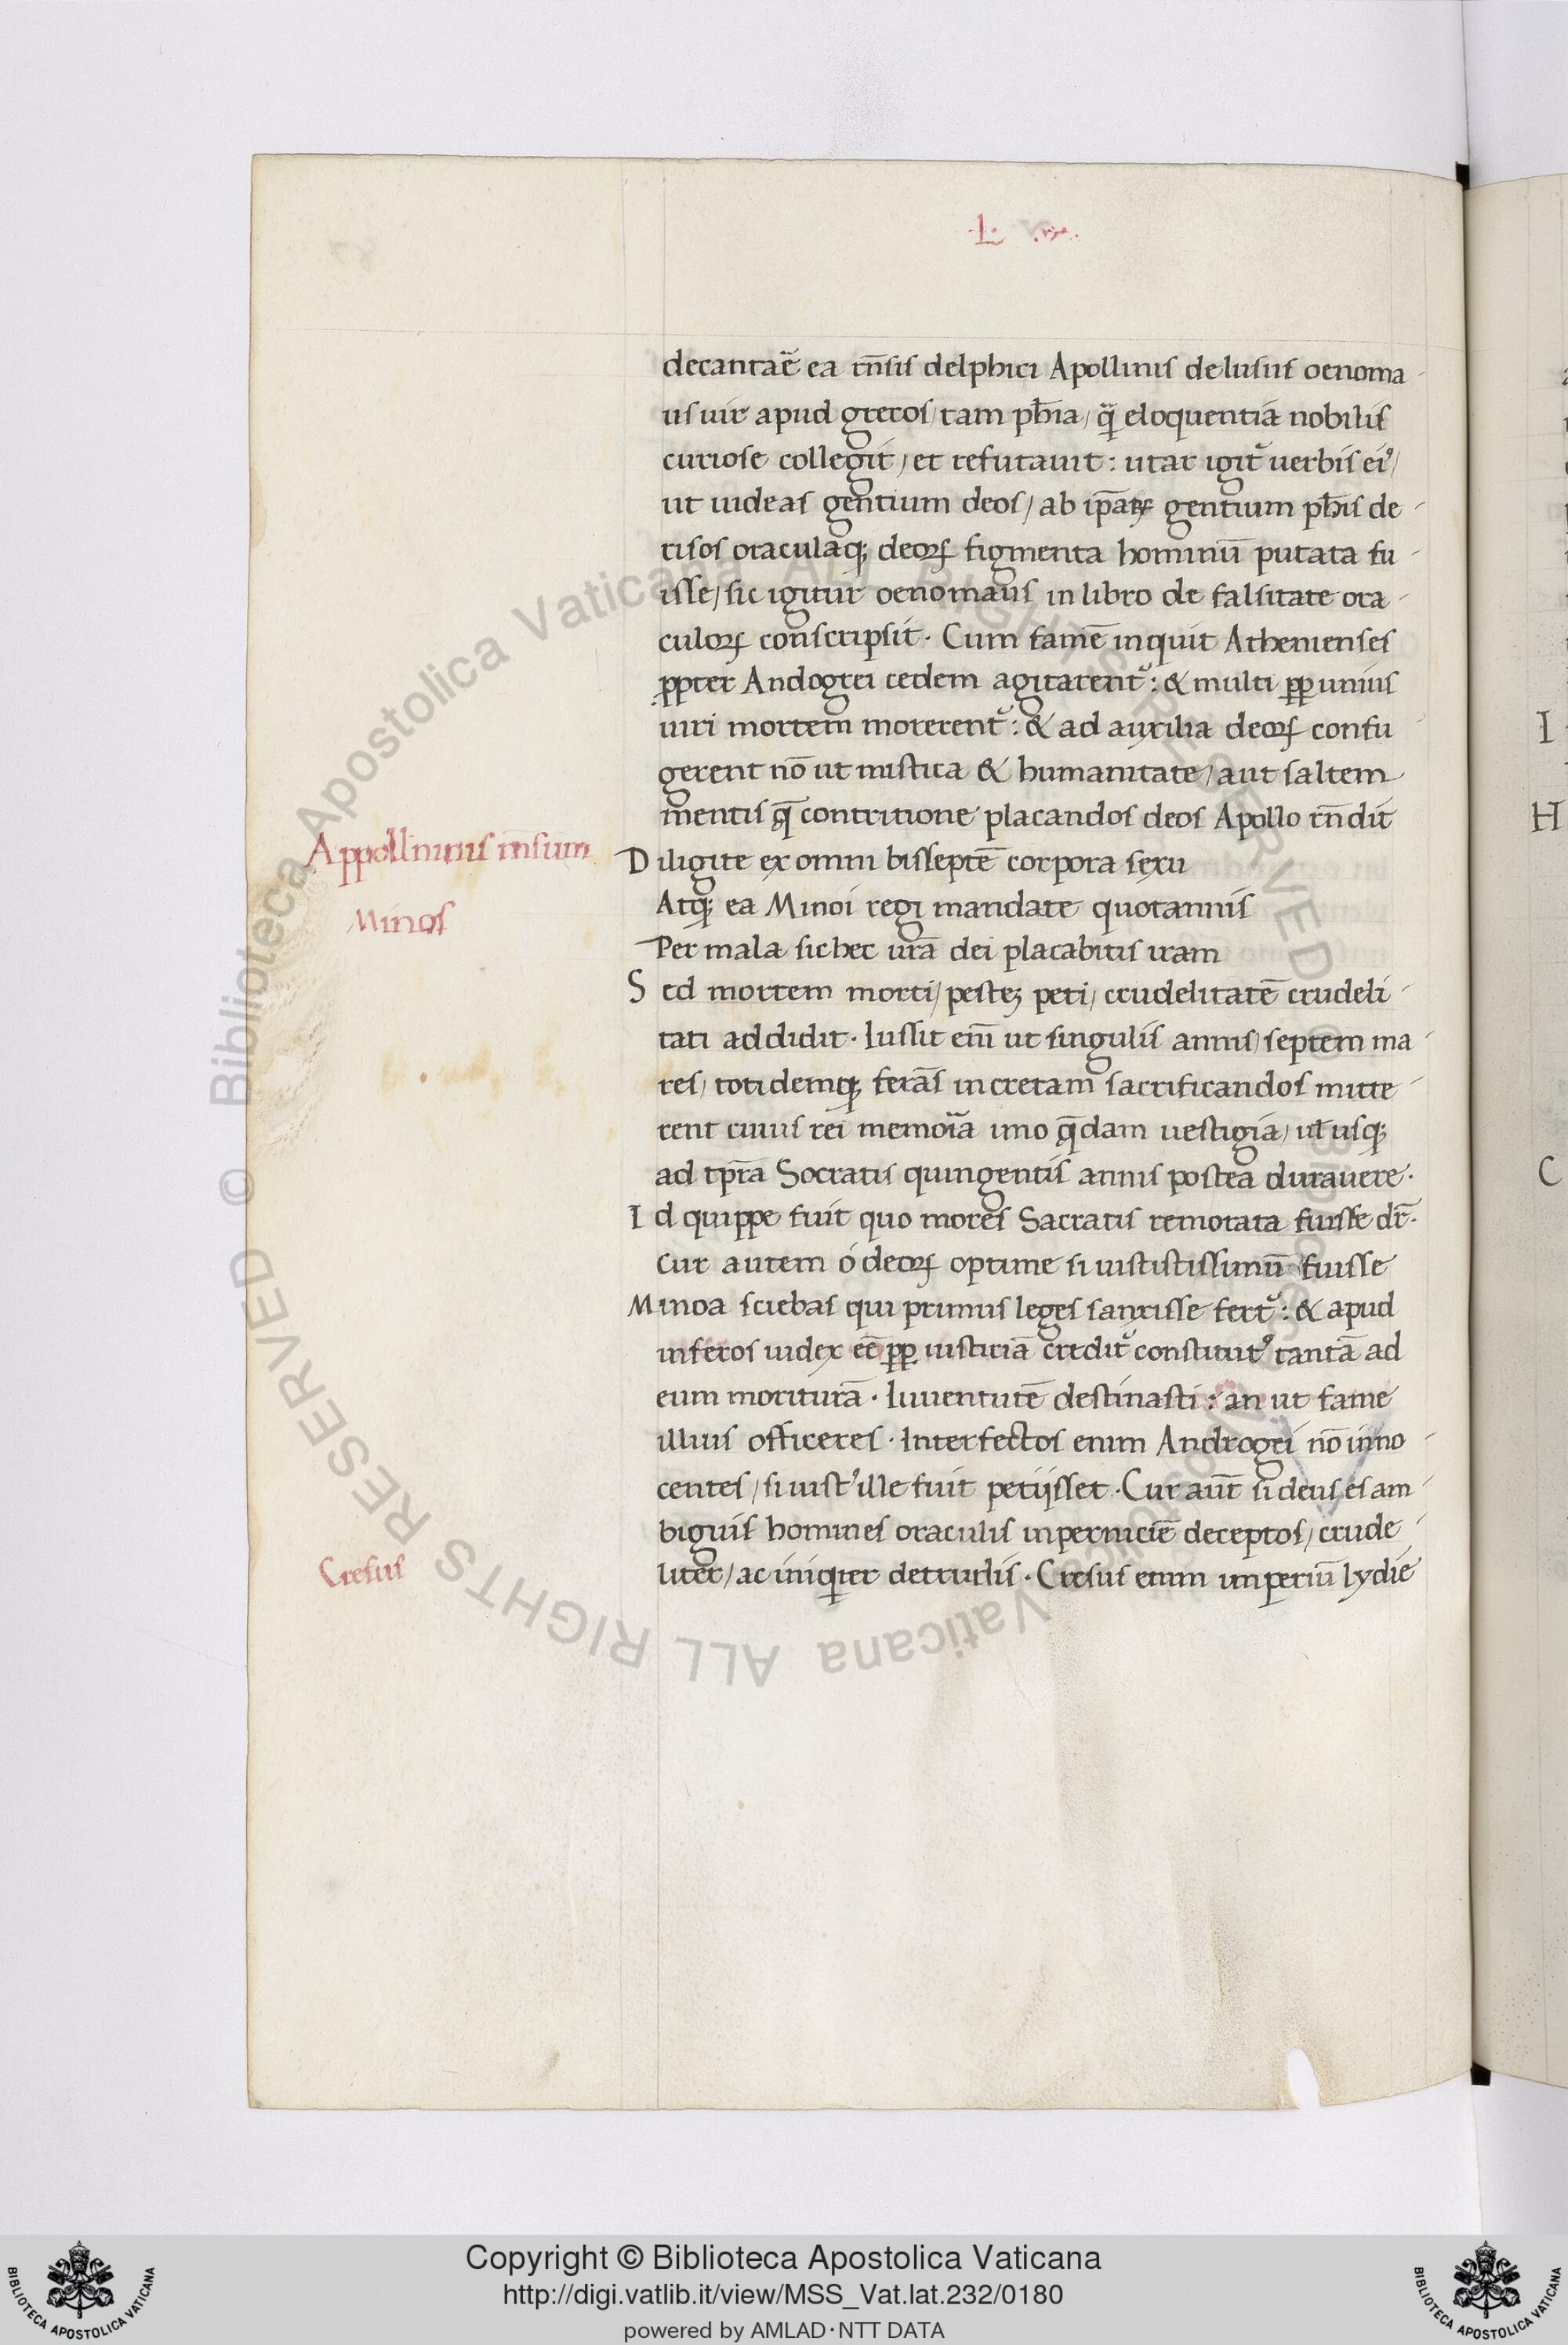 .L.
decantate ea rn̄sis delphici Apollinis delusus oenoma-
us uir apud grecos/ tam ph̄ia/ q̈ eloquentia nobilis
curiose collegit/ et refutauit: utar igit᷑ uerbis eiꝰ/
ut uideas gentium deos/ ab ip̄aꝝ gentium ph̄is de-
risos oraculaqꝫ deoꝝ figmenta hominū putata fu-
isse/ sic igitur oenomaus in libro de falsitate ora-
culoꝝ conscripsit· Cum famē inquit Athenienses
ꝓpter Andogrei cedem agitarent᷑: & multi pp unius
uiri mortem morerent᷑: & ad auxilia deoꝝ confu-
gerent nō ut mistica & humanitate/ aut saltem
mentis q̄ contritione placandos deos Apollo rn̄dit
Diligite ex omni bisseptē corpora sexu
Atqꝫ ea Minoi regi mandate quotannis
Per mala sic hec ur̄a dei placabitis iram
Sed mortem morti/ pesteꝫ peti/ crudelitatē crudeli-
tati addidit· Iussit em̄ ut singulis annis/ septem ma-
res/ totidemqꝫ feras̄ in cretam sacrificandos mitte-
rent cuius rei memoīa imo q̄dam uestigia/ uł usqꝫ
ad tp̄ra Socratis quingentis annis postea durauere·
Id quippe fuit quo mores Sacratis remorata fuisse dr̄·
Cur autem ó deoꝝ optime si iustistissimū fuisse
Minoa sciebas qui primus leges sanxisse fert᷑: & apud
inferos iudex eē pp iusticiā credit᷑ constitutꝰ tantā ad
eum moriturā· Iuuentutē destinasti: an ut fame
illius officeres· Interfectos enim Androgei nō inno-
centes/ si iustꝰ ille fuit petijsset· Cur aut̄ si deus es am-
biguis homines oraculis in perniciē deceptos/ crude-
liter/ ac iniq̇ter detrudis· Cresus enim imperiū lydie
Appollninis rn̄sum
Minos
Cresus
I
H
C
© Biblioteca Apostolica Vaticana ALL RIGHTS RESERVED © Biblioteca Apostolica Vaticana ALL RIGHTS RESERVED
Copyright © Biblioteca Apostolica Vaticana
http://digi.vatlib.it/view/MSS_Vat.lat.232/0180
powered by AMLAD·NTT DATA
BIBLIOTECA APOSTOLICA VATICANA
BIBLIOTECA APOSTOLICA VATICANA